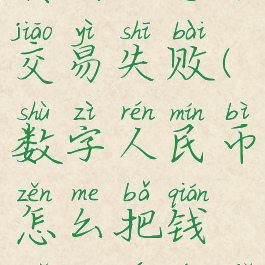 jiāo yì shī bài
交易失败(
shù zì rén mín bì
数字人民币
zěn me bǎ qián
怎么把钱